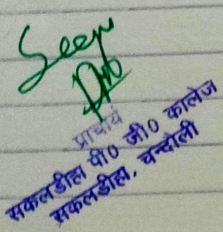 प्राचार्य
सकलडीहा पी० जी० कालेज
सकलडीहा, चन्दौली